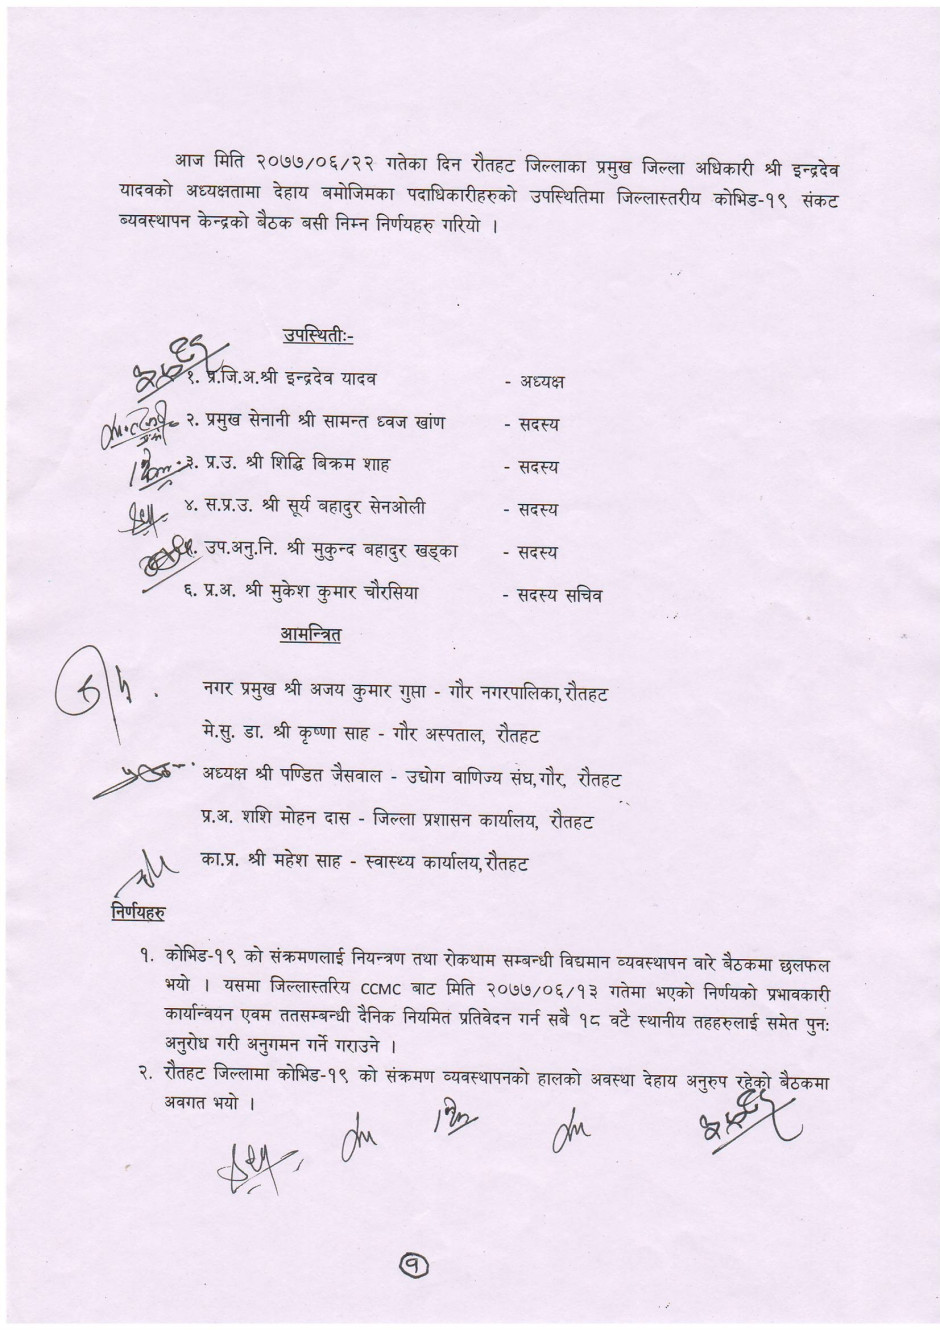 आज मिति २०७७/०६/२२ गतेका दिन रौतहट जिल्लाका प्रमुख जिल्ला अधिकारी श्री इन्द्रदेव
यादवको अध्यक्षतामा देहाय बमोजिमका पदाधिकारीहरुको उपस्थितिमा जिल्लास्तरीय कोभिड-१९ संकट
ब्यवस्थापन केन्द्रको बैठक बसी निम्न निर्णयहरु गरियो ।
उपस्थितीः-
१. प्र.जि.अ.श्री इन्द्रदेव यादव - अध्यक्ष
२. प्रमुख सेनानी श्री सामन्त ध्वज खांण - सदस्य
३. प्र.उ. श्री शिद्धि बिक्रम शाह - सदस्य
४. स.प्र.उ. श्री सूर्य बहादुर सेनओली - सदस्य
५. उप.अनु.नि. श्री मुकुन्द बहादुर खड्का - सदस्य
६. प्र.अ. श्री मुकेश कुमार चौरसिया - सदस्य सचिव
आमन्त्रित
नगर प्रमुख श्री अजय कुमार गुप्ता - गौर नगरपालिका,रौतहट
मे.सु. डा. श्री कृष्णा साह - गौर अस्पताल, रौतहट
अध्यक्ष श्री पण्डित जैसवाल - उद्योग वाणिज्य संघ,गौर, रौतहट
प्र.अ. शशि मोहन दास - जिल्ला प्रशासन कार्यालय, रौतहट
का.प्र. श्री महेश साह - स्वास्थ्य कार्यालय,रौतहट
निर्णयहरु
१. कोभिड-१९ को संक्रमणलाई नियन्त्रण तथा रोकथाम सम्बन्धी विद्यमान व्यवस्थापन वारे बैठकमा छलफल
भयो । यसमा जिल्लास्तरिय CCMC बाट मिति २०७७/०६/१३ गतेमा भएको निर्णयको प्रभावकारी
कार्यान्वयन एवम ततसम्बन्धी दैनिक नियमित प्रतिवेदन गर्न सबै १८ वटै स्थानीय तहहरुलाई समेत पुनः
अनुरोध गरी अनुगमन गर्ने गराउने ।
२. रौतहट जिल्लामा कोभिड-१९ को संक्रमण व्यवस्थापनको हालको अवस्था देहाय अनुरुप रहेको बैठकमा
अवगत भयो ।
१